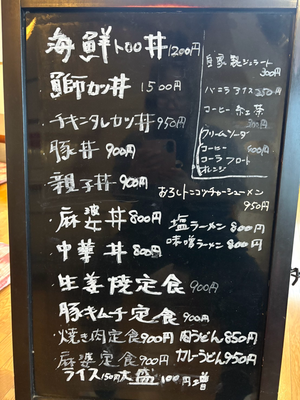 海鮮トロロ丼 1200円
鰤カツ丼 1500円
チキンタレカツ丼 950円
豚丼 900円
親子丼 900円
麻婆丼 800円
中華丼 800円
生姜焼定食 900円
豚キムチ定食 900円
焼き肉定食 900円
麻婆定食 900円
ライス150円 大盛100円増
自家製ジェラート
300円
バニラアイス 250円
コーヒー 紅茶
300円
クリームソーダ
コーヒー 400円
コーラ フロート
オレンジ
おろしトンコツチャーシューメン
950円
塩ラーメン 800円
味噌ラーメン 800円
肉うどん 850円
カレーうどん 950円